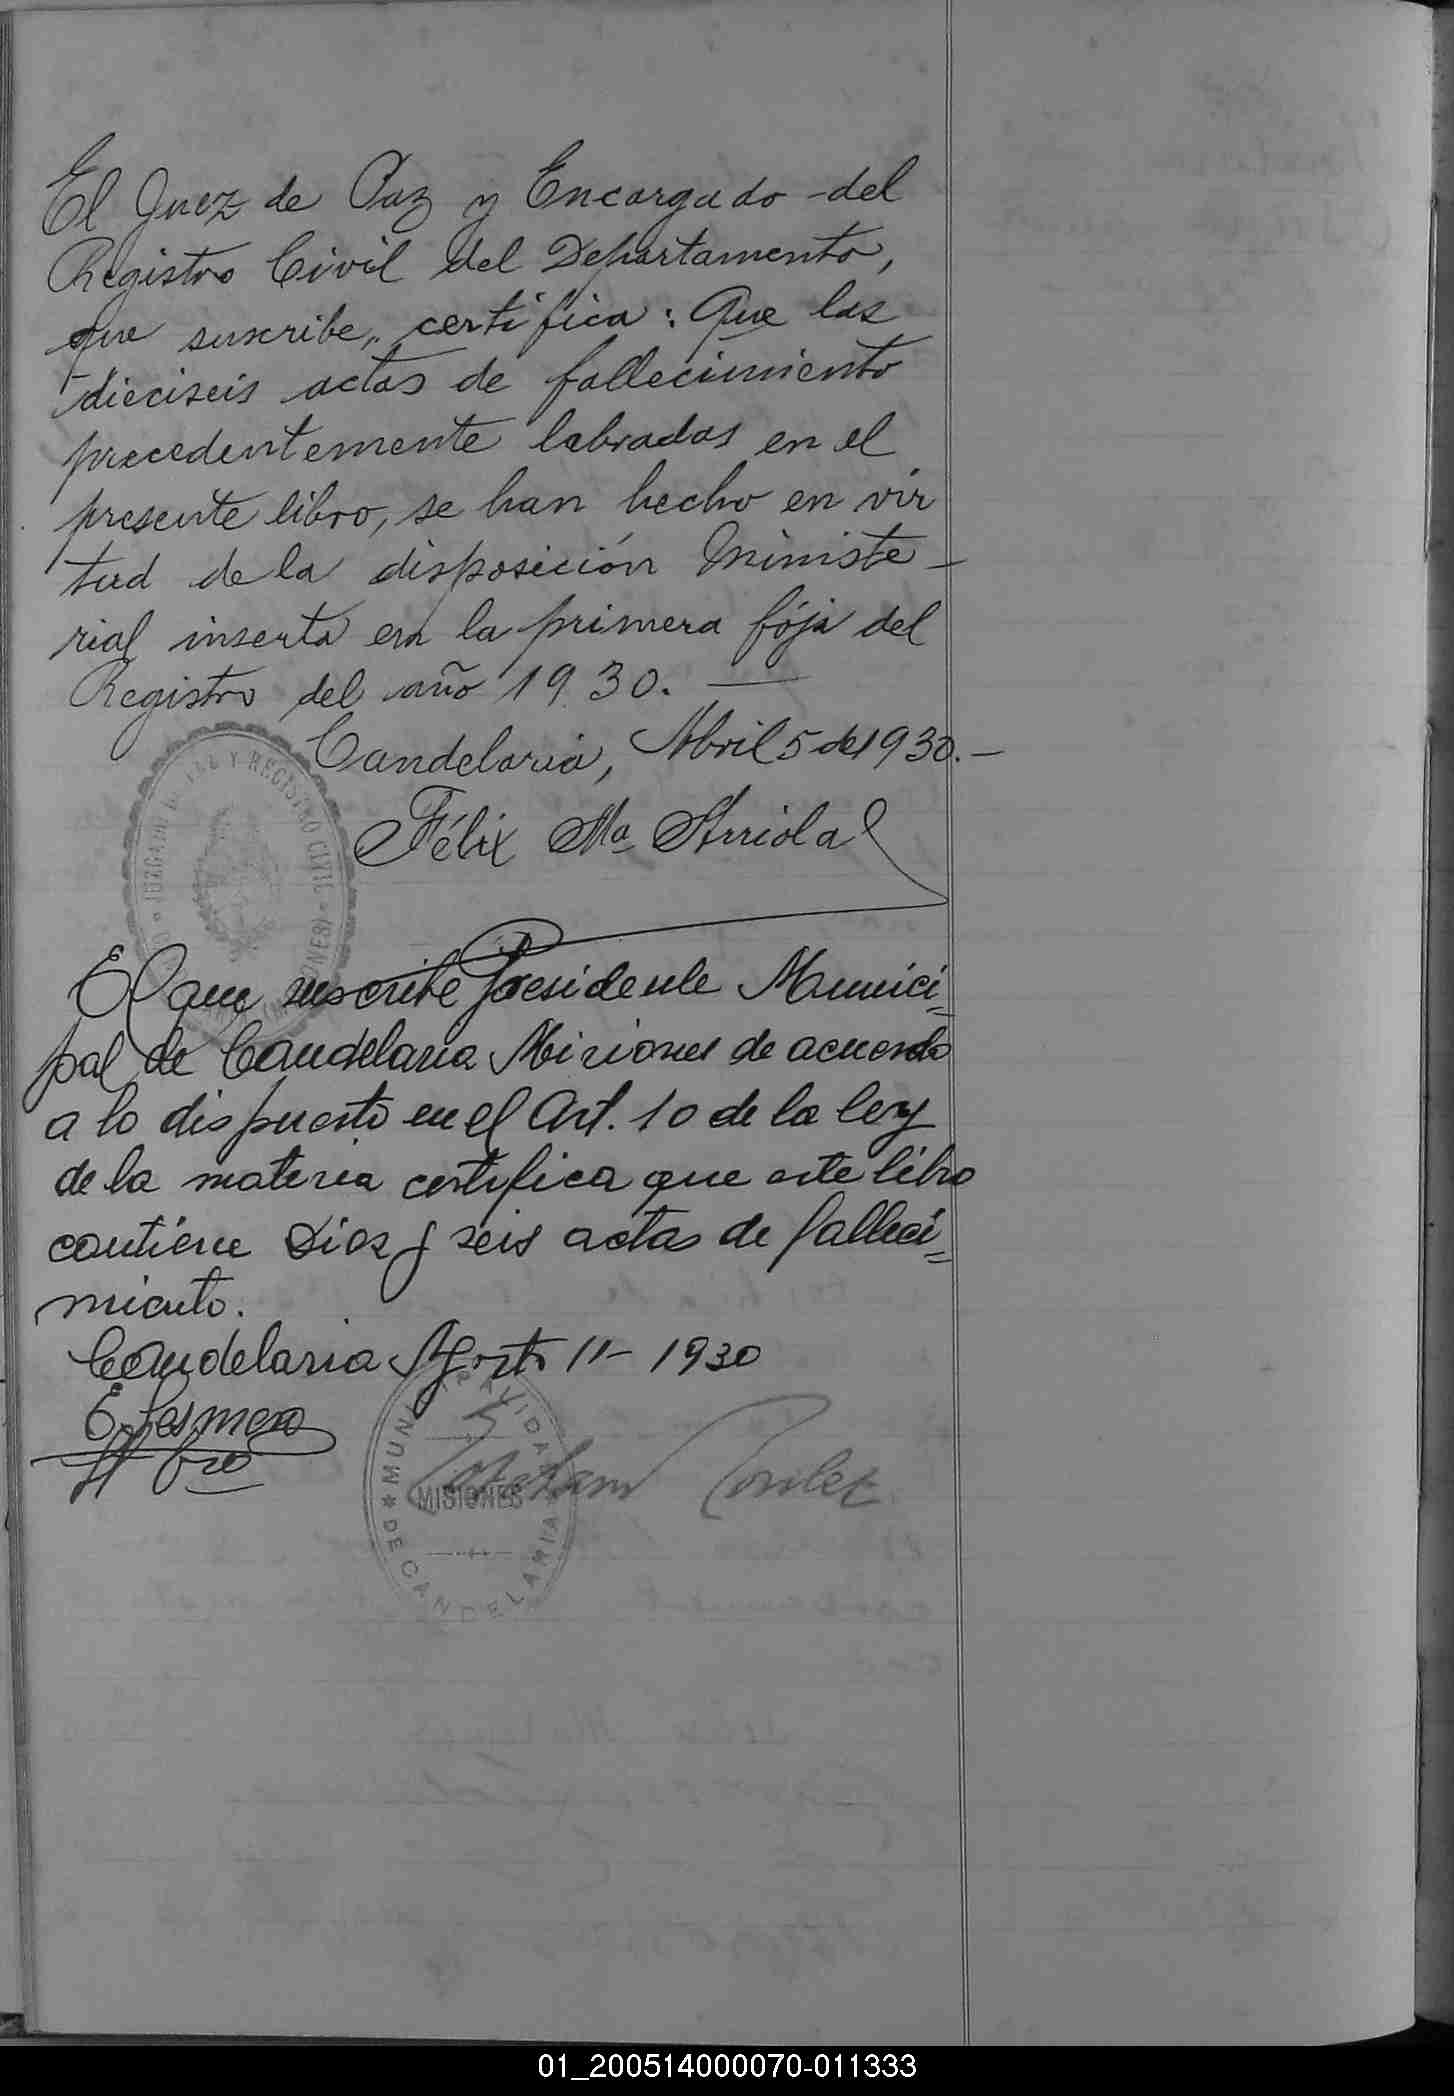 El Juez de Paz y Encargado del
Registro Civil del Departamento,
que suscribe, certifica: Que las
dieciseis actas de fallecimiento
precedentemente labradas en el
presente libro, se han hecho en vir
tud de la disposición Ministe-
rial inserta en la primera fója del
Registro del año 1930. —
Candelaria, Abril 5 de 1930.—
JUZGADO DE PAZ Y REGISTRO CIVIL
Félix Ma Arriola
El que suscribe Presidente Munici=
pal de Candelaria Misiones de acuerdo
a lo dispuesto en el Art. 10 de la ley
de la materia certifica que este libro
contiene Diez y seis actas de falleci=
miento.
Candelaria Agosto 11- 1930
MUNICIPALIDAD DE CANDELARIA
MISIONES
01_200514000070-011333